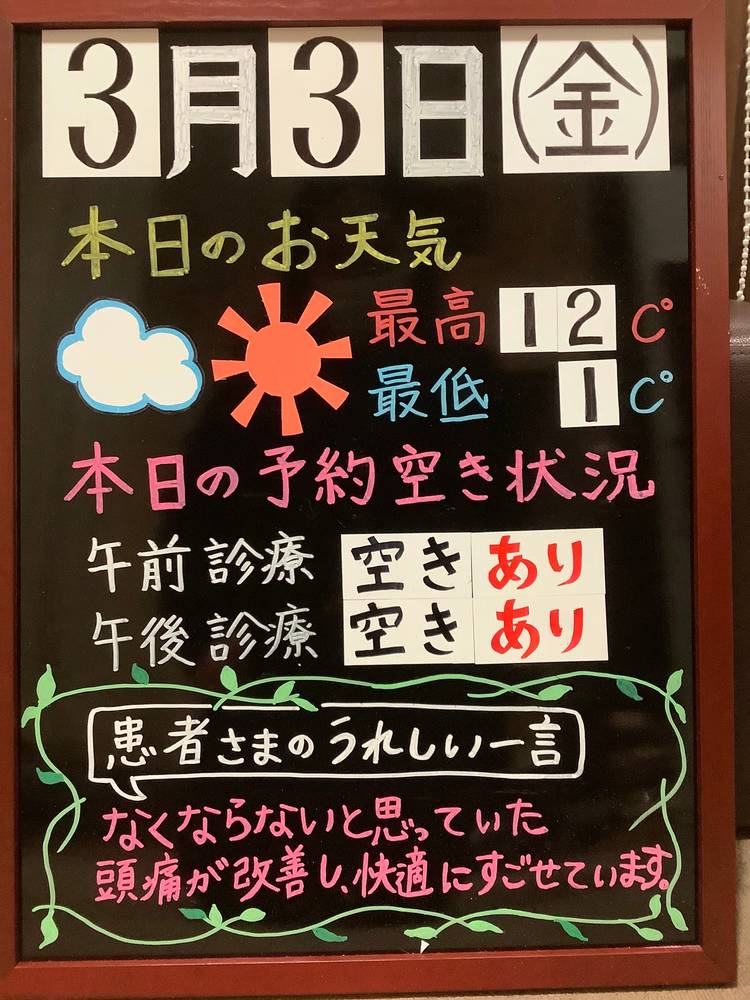 3月3日(金)
本日のお天気
最高 12 C°
最低 1 C°
本日の予約空き状況
午前診療 空きあり
午後診療 空きあり
患者さまのうれしい一言
なくならないと思っていた
頭痛が改善し、快適にすごせています。